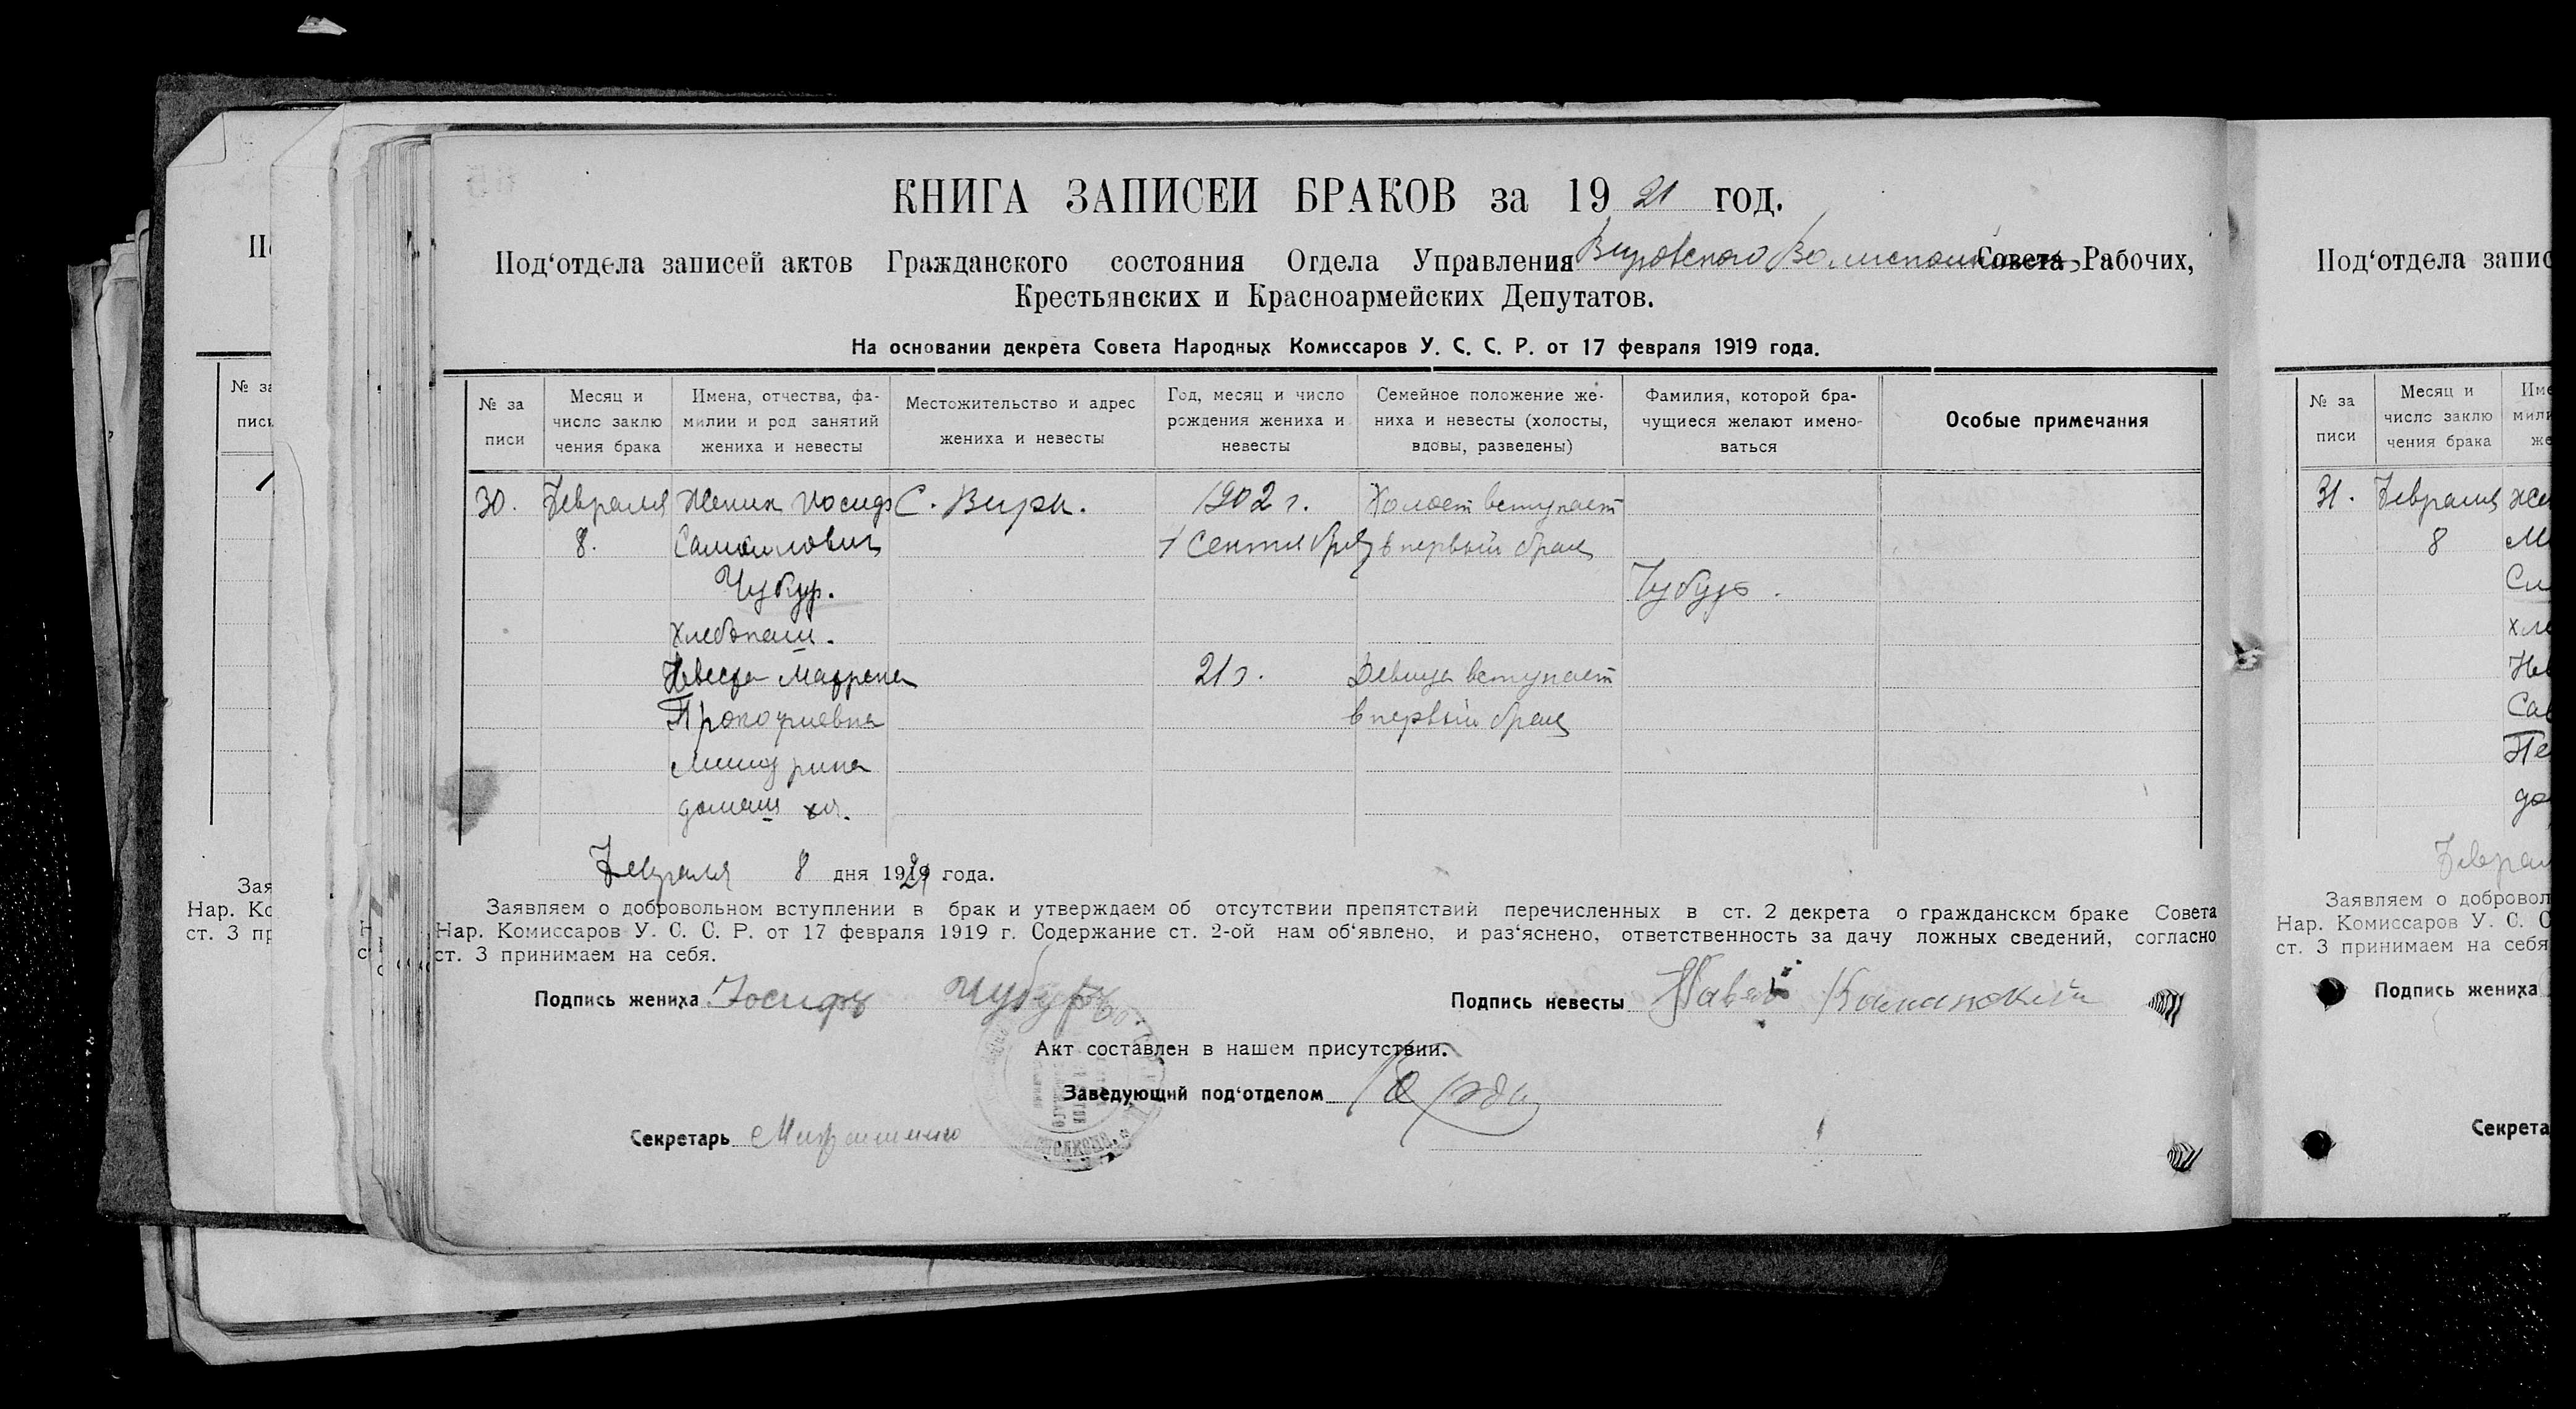 КНИГА ЗАПИСЕЙ БРАКОВ за 1921 год.
Под‘отдела записей актов Гражданского состояния Отдела Управления Вировского Совета Рабочих,
Крестьянских и Красноармейских Депутатов.
На основании декрета Совета Народных Комиссаров У. С. С. Р. от 17 февраля 1919 года.
№ за
писи
Месяц и
число заклю
чения брака
Имена, отчества, фа-
милии и род занятий
жениха и невесты
Местожительство и адрес
жениха и невесты
Год, месяц и число
рождения жениха и
невесты
Семейное положение же-
ниха и невесты (холосты,
вдовы, разведены)
Фамилия, которой бра-
чущиеся желают имено-
ваться
Особые примечания
30. Февраля Жених Иосиф С. Виры. 1902 г. Холост вступает
8. Самойлович 1 Сентября в первый брак
Чубур. Чубур.
хлебопаш.
Невеста Мотрена 21 г. Девица вступает
Прокофиевна в первый брак
домаш хоз.
Февраля 8 дня 1921 года.
Заявляем о добровольном вступлении в брак и утверждаем об отсутствии препятствий перечисленных в ст. 2 декрета о гражданском браке Совета
Нар. Комиссаров У. С. С. Р. от 17 февраля 1919 г. Содержание ст. 2-ой нам об‘явлено, и раз‘яснено, ответственность за дачу ложных сведений, согласно
ст. 3 принимаем на себя.
Подпись жениха Иосифъ Чубуръ
Подпись невесты
Акт составлен в нашем присутствии.
Заведующий под‘отделом
Секретарь
Под‘отдела запис
№ за
писи
Месяц и
число заклю
чения брака
31. Февраля
8
Заявляем о добровол
Нар. Комиссаров У. С. С
ст. 3 принимаем на себя
Подпись жениха
Секрета